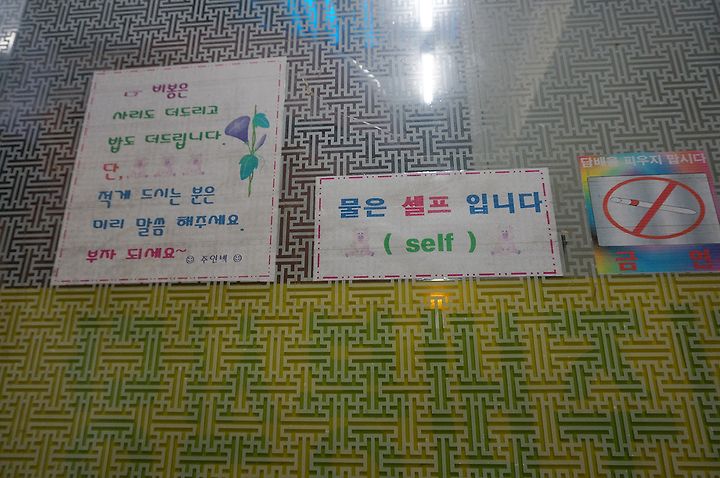 ☞ 비봉은
사리도 더드리고
밥도 더드립니다.
단,
적게 드시는 분은
미리 말씀 해주세요.
부자 되세요~
☺ 주인백 ☺
물은 셀프 입니다
( self )
담배를 피우지 맙시다
금 연